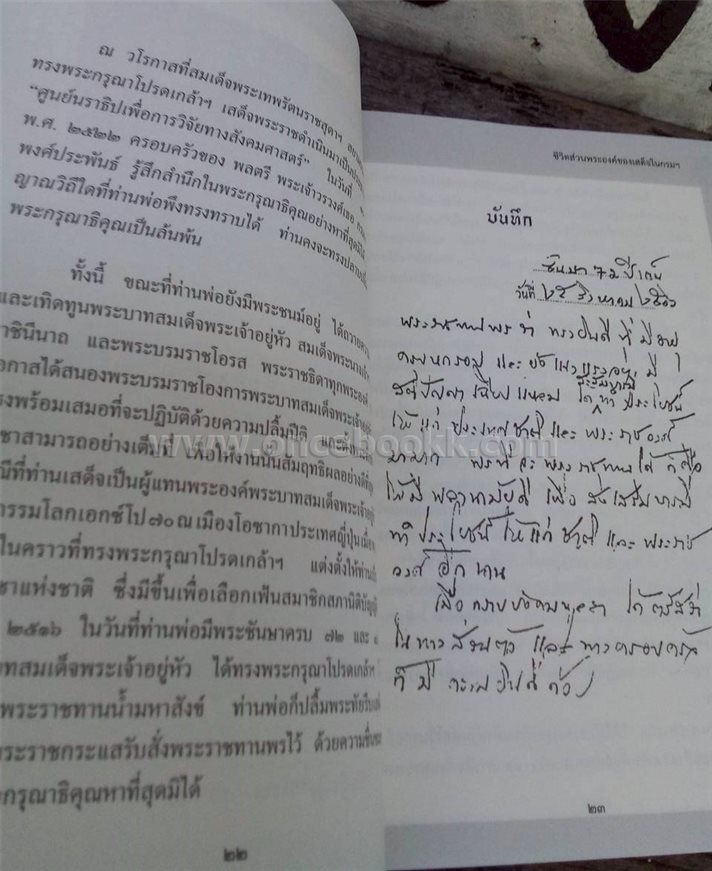 ณ วโรกาสที่สมเด็จพระเทพรัตนราชสุดาฯ
ทรงพระกรุณาโปรดเกล้าฯ เสด็จพระราชดำเนินมาเป็น
“ศูนย์นราธิปเพื่อการวิจัยทางสังคมศาสตร์” ในวันที่
พ.ศ. ๒๕๒๒ ครอบครัวของ พลตรี พระเจ้าวรวงศ์เธอ
พงศ์ประพันธ์ รู้สึกสำนึกในพระกรุณาธิคุณอย่างหาที่สุดมิได้
ญาณวิถีใดที่ท่านพ่อพึงทรงทราบได้ ท่านคงจะทรง
พระกรุณาธิคุณเป็นล้นพ้น
ทั้งนี้ ขณะที่ท่านพ่อยังมีพระชนม์อยู่ ได้ถวาย
และเทิดทูนพระบาทสมเด็จพระเจ้าอยู่หัว สมเด็จพระนาง
ราชินีนาถ และพระบรมราชโอรส พระราชธิดาทุกพระองค์
โอกาสได้สนองพระบรมราชโองการพระบาทสมเด็จพระเจ้าอยู่
ทรงพร้อมเสมอที่จะปฏิบัติด้วยความปลื้มปีติ และ
สามารถอย่างเต็มที่ เพื่อให้งานนั้นสัมฤทธิผลอย่างดี
ที่ท่านเสด็จเป็นผู้แทนพระองค์พระบาทสมเด็จพระเจ้าอยู่
กรรมโลกเอกซ์โป ๗๐ ณ เมืองโอซากาประเทศญี่ปุ่น
ในคราวที่ทรงพระกรุณาโปรดเกล้าฯ แต่งตั้งให้ท่าน
ชาแห่งชาติ ซึ่งมีขึ้นเพื่อเลือกเฟ้นสมาชิกสภานิติบัญญัติ
๒๕๑๖ ในวันที่ท่านพ่อมีพระชันษาครบ ๗๒ และ
บาทสมเด็จพระเจ้าอยู่หัว ได้ทรงพระกรุณาโปรดเกล้าฯ
พระราชทานน้ำมหาสังข์ ท่านพ่อก็ปลื้มพระทัย
พระราชกระแสรับสั่งพระราชทานพรไว้ ด้วยความ
กรุณาธิคุณหาที่สุดมิได้
๒๒
ชีวิตส่วนพระองค์ของเสด็จในกรมฯ
บันทึก
ชันษา ๗๒ ปีเต็ม
วันที่ ๒๕ สิงหาคม ๒๕๐๖
พระราชทานพร ว่า ทรงยินดี ที่ มีอายุ
ครบหกรอบ และ ยังแข็งแรงอยู่ มี
สติปัญญา เฉียบแหลม ได้ ทำ ประโยชน์
ให้ แก่ ประเทศชาติ และ พระราชวงศ์
มามาก พรที่จะพระราชทานได้ ก็คือ
ให้มี พลานามัยดี เพื่อ
ทำประโยชน์ ให้แก่ ชาติ และ พระราช
วงศ์ อีก นาน
เมื่อ กราบบังคมทูลลา ได้ตรัสว่า
ในทางส่วนตัว และ ทางครอบครัว
ก็ มี ความยินดี ด้วย
๒๓
www.oncebookk.com